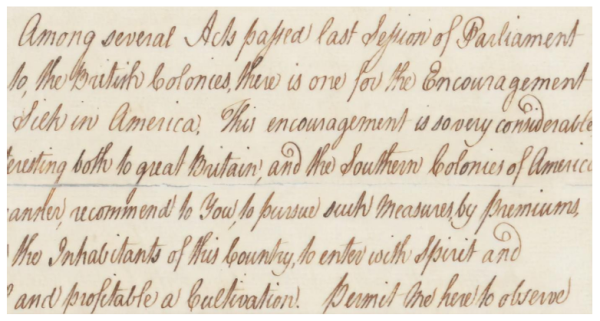 Among several Acts passed last Session of Parliament
to, the British Colonies, there is one for the Encouragement
Silk in America. This encouragement is so very considerable
teresting both to great Britain, and the Southern Colonies of America
anner, recommend to You, to pursue such Measures, by premiums,
the Inhabitants of this Country, to enter with Spirit and
and profitable a Cultivation. Permit Me here to observe